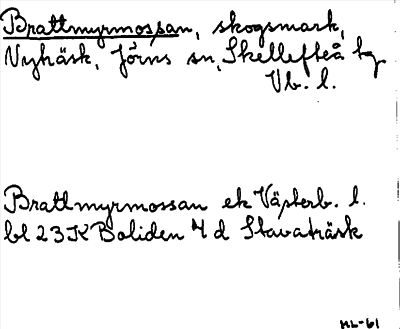 Brattmyrmossan, skogsmark,
Nyträsk, Jörns sn, Skellefteå kg
Vb. l.
Brattmyrmossan ek Västerb. l.
bl 23K Boliden 4 d Stavaträsk
ML-61